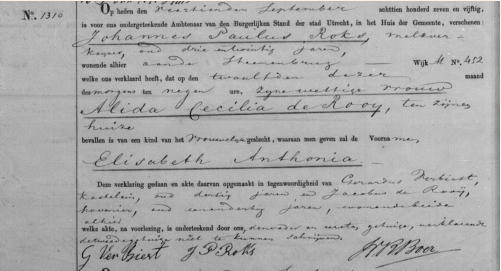 Nº. 1310
Op heden den Veertienden September achttien honderd zeven en vijftig,
is voor ons ondergeteekende Ambtenaar van den Burgerlijken Stand der stad Utrecht, in het Huis der Gemeente, verschenen:
Johannes Paulus Roks, melkver-
kooper, oud drie en twintig jaren,
wonende alhier aan de Steenenbrug — Wijk M Nº. 452
welke ons verklaard heeft, dat op den twaalfden dezer maand
des morgens te negen ure, zijne wettige vrouw
Alida Cecilia de Rooy, ten zijnen
huize
bevallen is van een kind van het Vrouwelijk geslacht, waaraan men geven zal de Voorna men,
Elisabeth Anthonia —
Deze verklaring gedaan en akte daarvan opgemaakt in tegenwoordigheid van Gerardus Verbiest,
kastelein, oud dertig jaren en Jacobus de Rooij,
hovenier, oud een en dertig jaren, wonende beide
alhier
welke akte, na voorlezing, is onderteekend door ons, den vader en eersten getuige, verklarende
de tweede getuige niet te kunnen schrijven.
G Verbiest J P Roks